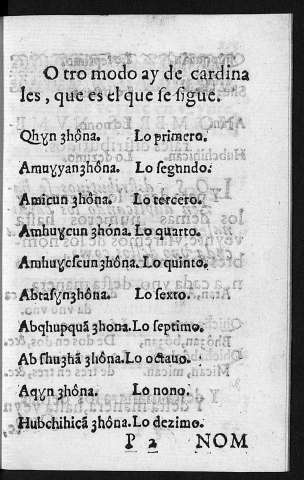 O tro modo ay de cardina
les, que es el que se sigue.
Qhyn ȝhôna. Lo primero.
Amuyan ȝhôna. Lo segundo.
Amicun ȝhôna. Lo tercero.
Amhuɣcun ȝhóna. Lo quarto.
Amhuɣcscun ȝhôna. Lo quinto.
Abtasyn ȝhôna. Lo sexto.
Abqhupquã ȝhona. Lo septimo.
Abshuȝhã ȝhôna. Lo octauo.
Aqyn ȝhôna. Lo nono.
Hubchihicã ȝhôna. Lo dezimo.
P 2 NOM